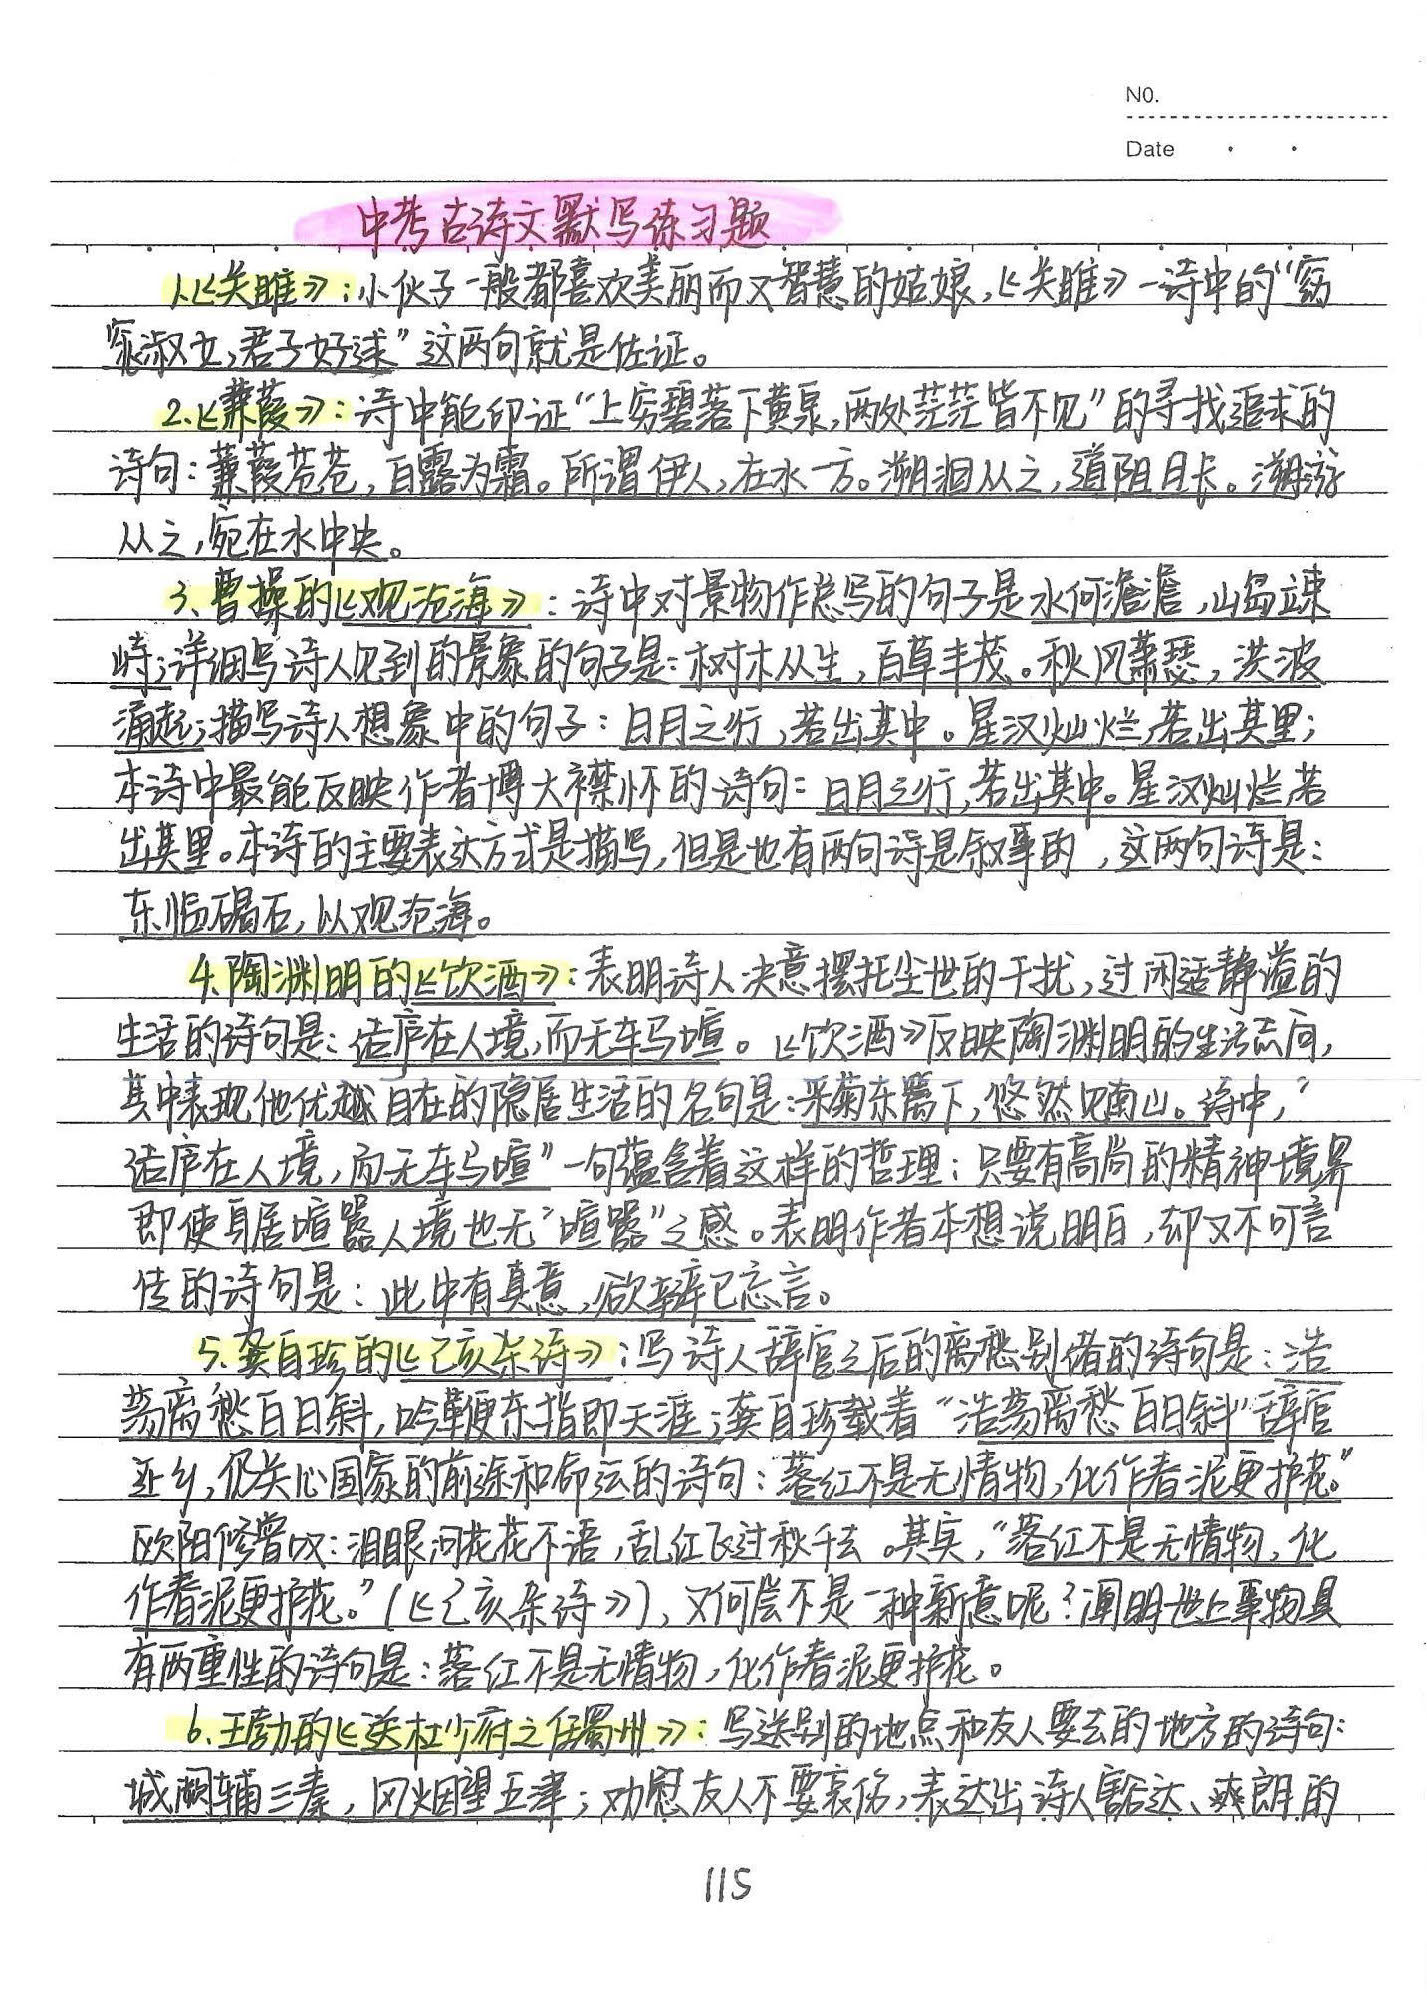 NO.
Date
中考古诗文默写练习题
1.《关雎》:小伙子一般都喜欢美丽而又智慧的姑娘,《关雎》一诗中的“窈
窕淑女,君子好逑”这两句就是佐证。
2.《蒹葭》:诗中能印证“上穷碧落下黄泉,两处茫茫皆不见”的寻找追求的
诗句:蒹葭苍苍,白露为霜。所谓伊人,在水一方。溯洄从之,道阻且长。溯游
从之,宛在水中央。
3、曹操的《观沧海》:诗中对景物作总写的句子是水何澹澹,山岛竦
峙;详细写诗人见到的景象的句子是:树木从生,百草丰茂。秋风萧瑟,洪波
涌起;描写诗人想象中的句子:日月之行,若出其中。星汉灿烂,若出其里;
本诗中最能反映作者博大襟怀的诗句:日月之行,若出其中。星汉灿烂若
出其里。本诗的主要表达方式是描写,但是也有两句诗是叙事的,这两句诗是:
东临碣石,以观沧海。
4.陶渊明的《饮酒》:表明诗人决意摆托尘世的干扰,过闲适静谧的
生活的诗句是:结庐在人境,而无车马喧。《饮酒》反映陶渊明的生活志向,
其中表现他优越自在的隐居生活的名句是:采菊东篱下,悠然见南山。诗中,“
结庐在人境,而无车马喧”一句蕴含着这样的哲理:只要有高尚的精神境界
即使身居喧嚣人境也无“喧嚣”之感。表明作者本想说明白,却又不可言
传的诗句是:此中有真意,欲辩已忘言。
5、龚自珍的《己亥杂诗》:写诗人辞官之后的离愁别绪的诗句是:浩
荡离愁白日斜,吟鞭东指即天涯;龚自珍载着“浩荡离愁白日斜”辞官
还乡,仍关心国家的前途和命运的诗句:落红不是无情物,化作春泥更护花。”
欧阳修曾叹:泪眼问花花不语,乱红飞过秋千去。其实,“落红不是无情物,化
作春泥更护花。”(《己亥杂诗》),又何尝不是一种新意呢?阐明世上事物具
有两重性的诗句是:落红不是无情物,化作春泥更护花。
6、王勃的《送杜少府之任蜀州》:写送别的地点和友人要去的地方的诗句:
城阙辅三秦,风烟望五津;劝慰友人不要哀伤,表达出诗人豁达、爽朗的
115